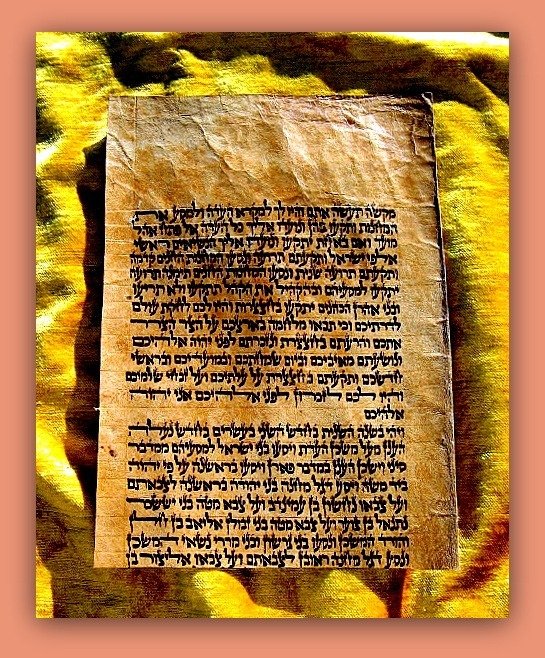 מקשה תעשה אתם והיו לך למקרא העדה ולמסע את
המחנות ותקעו בהן ונועדו אליך כל העדה אל פתח אהל
מועד ואם באחת יתקעו ונועדו אליך הנשיאים ראשי
אלפי ישראל ותקעתם תרועה ונסעו המחנות החנים קדמה
ותקעתם תרועה שנית ונסעו המחנות החנים תימנה תרועה
יתקעו למסעיהם ובהקהיל את הקהל תתקעו ולא תריעו
ובני אהרן הכהנים יתקעו בחצצרות והיו לכם לחקת עולם
לדרתיכם וכי תבאו מלחמה בארצכם על הצר הצרר
אתכם והרעתם בחצצרת ונזכרתם לפני יהוה אלהיכם
ונושעתם מאיביכם וביום שמחתכם ובמועדיכם ובראשי
חדשכם ותקעתם בחצצרת על עלתיכם ועל זבחי שלמיכם
והיו לכם לזכרון לפני אלהיכם אני יהוה
אלהיכם
ויהי בשנה השנית בחדש השני בעשרים בחדש נעלה
הענן מעל משכן העדת ויסעו בני ישראל למסעיהם ממדבר
סיני וישכן הענן במדבר פארן ויסעו בראשנה על פי יהוה
ביד משה ויסע דגל מחנה בני יהודה בראשנה לצבאתם
ועל צבאו נחשון בן עמינדב ועל צבא מטה בני יששכר
נתנאל בן צוער ועל צבא מטה בני זבולן אליאב בן חלן
והורד המשכן ונסעו בני גרשון ובני מררי נשאי המשכן
ונסע דגל מחנה ראובן לצבאתם ועל צבאו אליצור בן